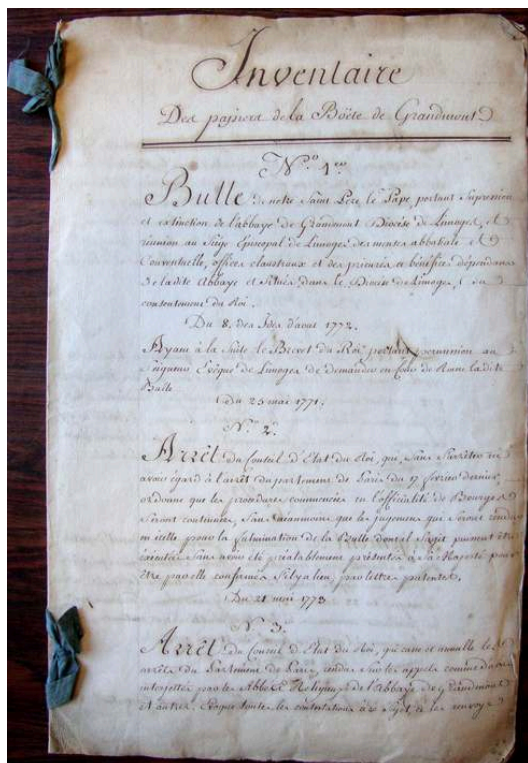 Inventaire
Des papiers de la Boëte de Grandmont
N.º 1.er
Bulle de notre Saint Pere le Pape, portant Supression
et extinction de l'abbaye de Grandmont Diocèse de Limoges, et
réunion au Siége Episcopal de Limoges des mentes abbatiale et
Conventuelle, offices claustraux et des prieurés et bénéfices dépendans
de ladite Abbaye et situés dans le Diocèse de Limoges, du
consentement du Roi.
Du 8. des Ides d'aout 1772.
Ayant à la Suite le Brevet du Roi portant permission au
Seigneur Evêque de Limoges de demander en Cour de Rome ladite
Bulle
Du 25 mai 1771.
N.º 2.
Arrêt du Conseil d'Etat du Roi, qui, Sans S'arrêter ni
avoir égard à l'arrêt du parlement de Paris du 17 fevrier dernier,
ordonne que les procedures commencées en l'officialité de Bourges
Seront continuées, Sans néanmoins que les jugemens qui Seront rendus
en icelle pour la fulmination de la Bulle dont il S'agit puissent être
executés Sans avoir été préalablement présentés à Sa Majesté pour
être par elle confirmés S'il y a lieu, par lettres patentes.
Du 21 mai 1773
N.º 3.
Arrêt du Conseil d'Etat du Roi, qui casse et annulle le
arrêts du Parlement de Paris, rendus Sur les appels comme d'abus
interjettés par les Abbé & Religieux de l'Abbaye de Grandmont
et autres. Evoque toutes les contestations à ce Sujet, & les renvoye